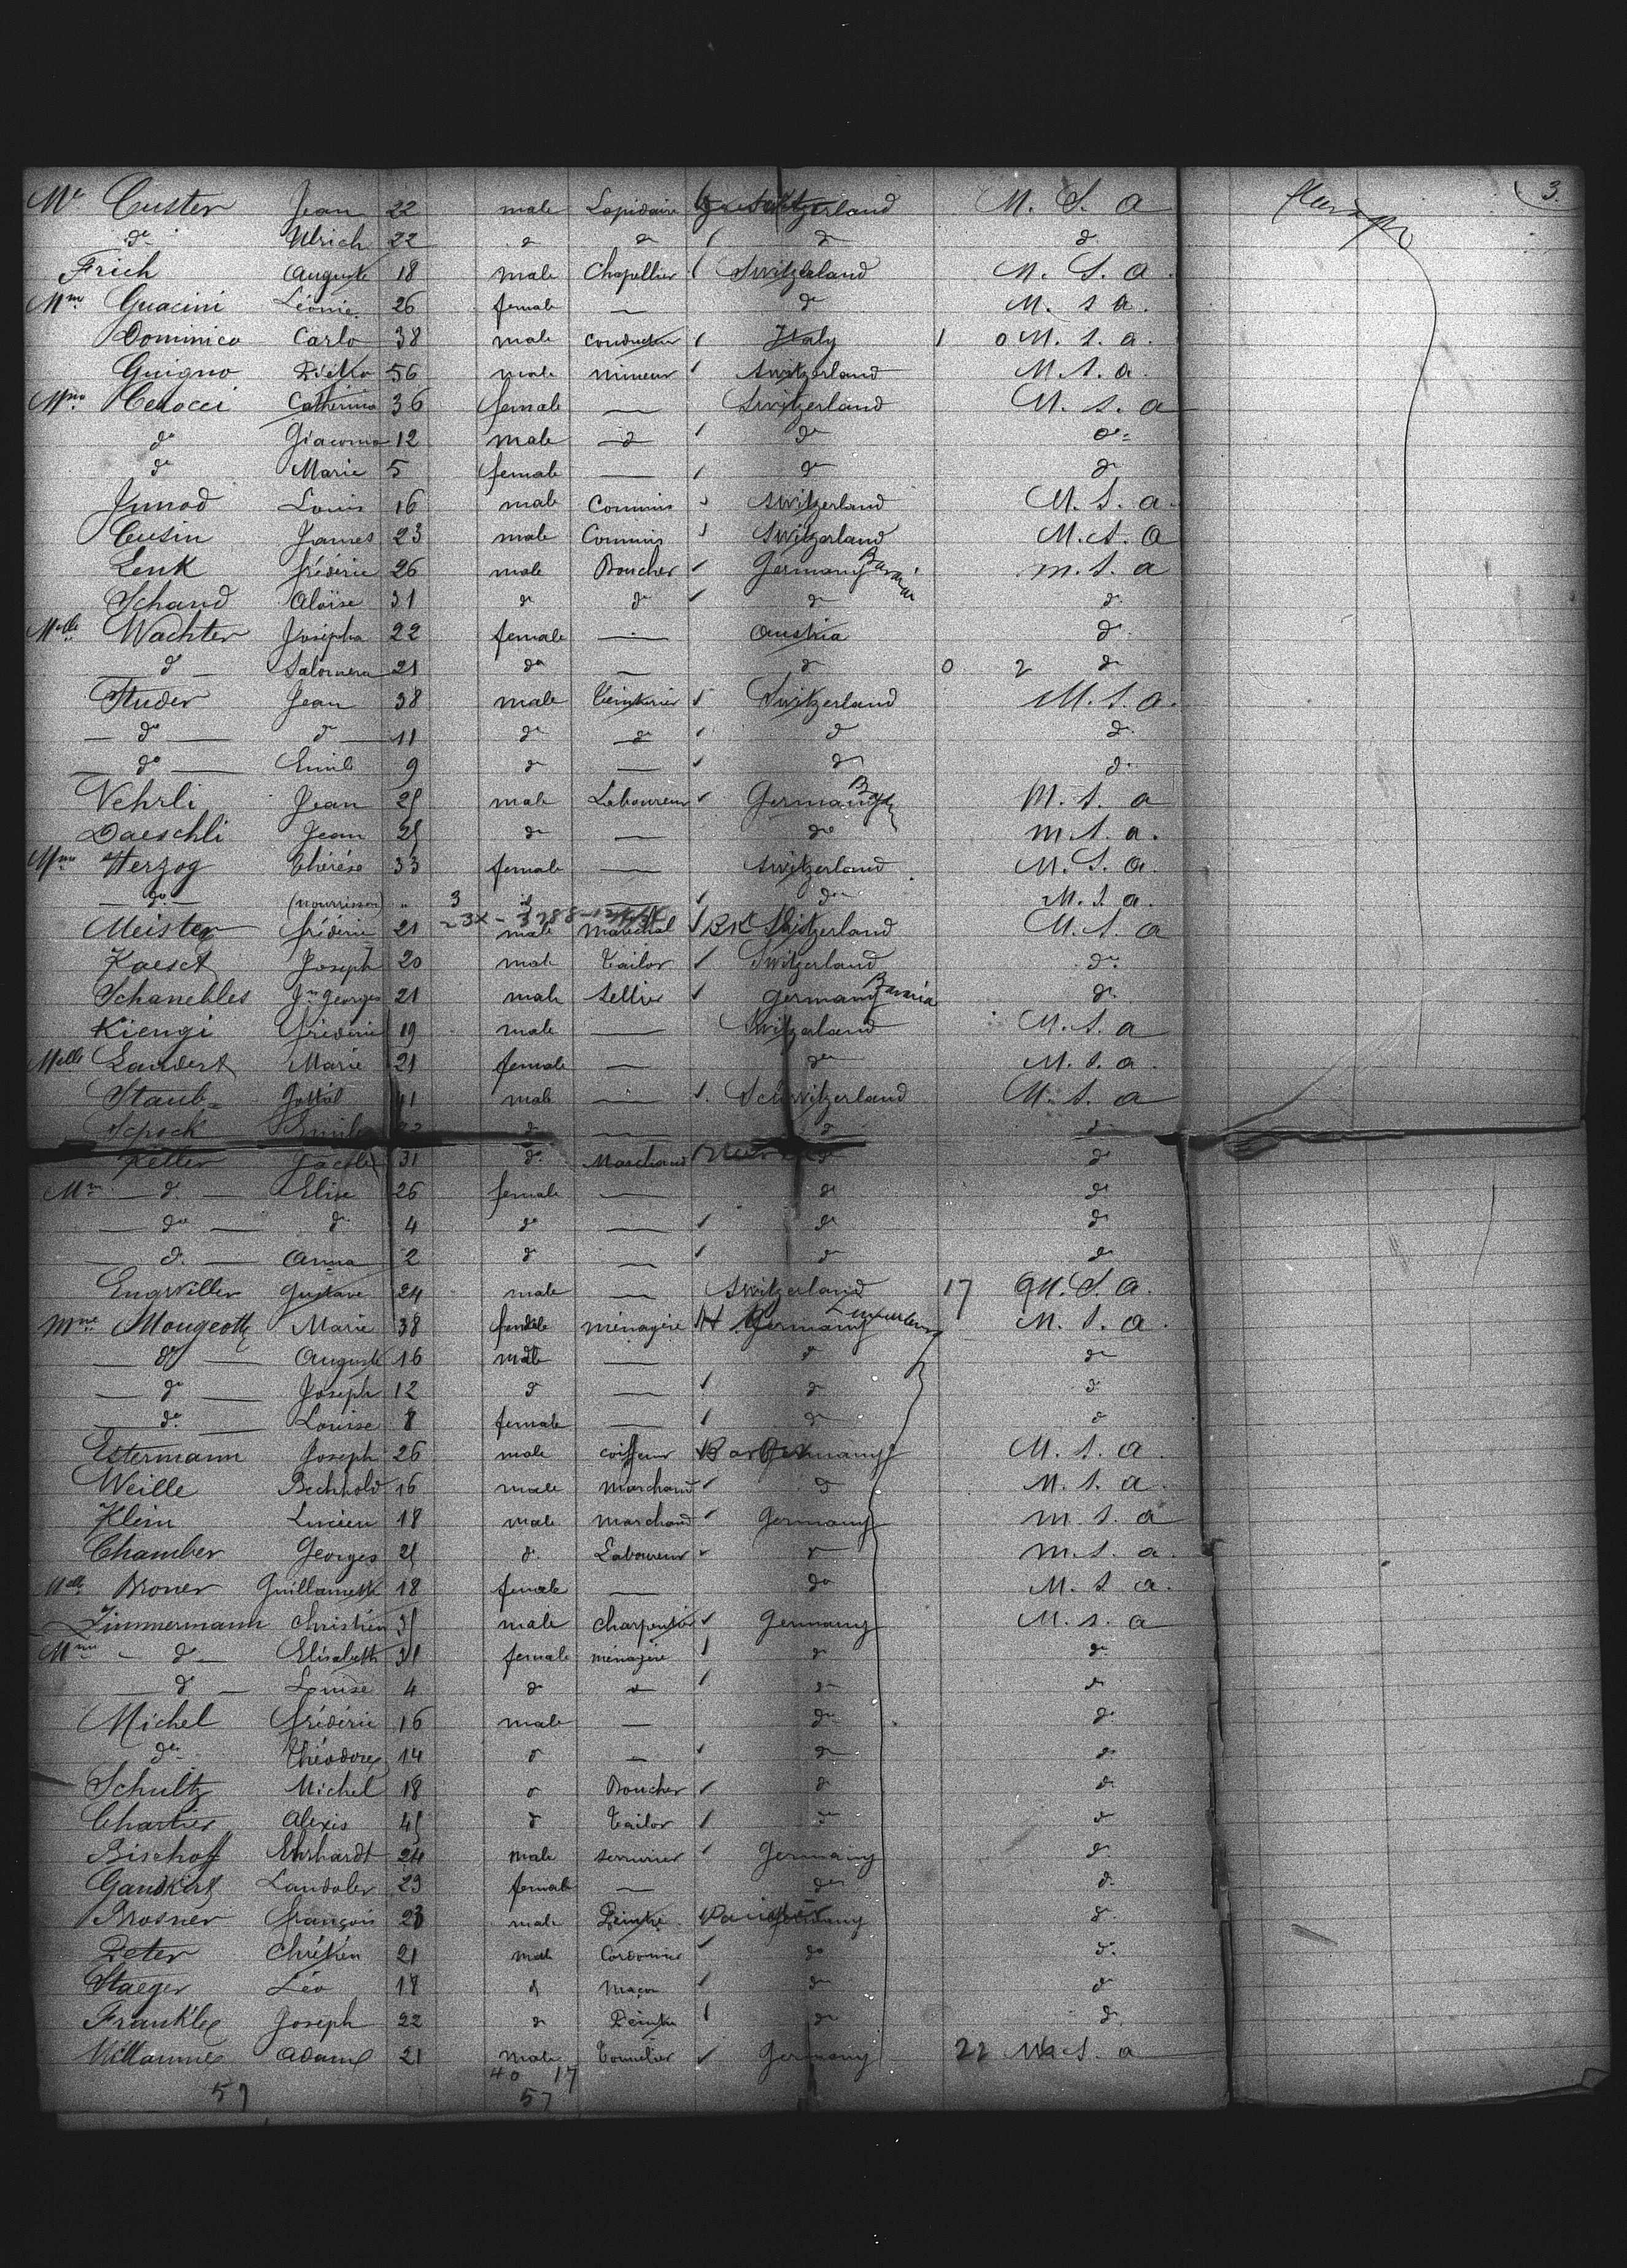 3
Mr Custer Jean 22 male Lapidaire Switzerland M. S. A
do Ulrich 22 do do do do
Frich Auguste 18 male Chapellier Switzerland M. S. A.
Mme Guacini Léonie 26 female — do M. S. A.
Dominico Carlo 38 male conducteur Italy 1 0 M. S. A.
Guigno Pietro 56 male mineur Switzerland M. S. A.
Mme Cerocci Catherina 36 female — Switzerland M. S. A
do Giacomo 12 male do do do
do Marie 5 female — do do
Junod Louis 16 male Commis Switzerland M. S. A.
Cusin James 23 male Commis Switzerland M. S. A
Lenk Frédéric 26 male Boucher Germany Bavaria M. S. A
Schand Aloïse 31 do do do do
Melle Wachter Josépha 22 female — Austria do
do 21 do — do 0 2 do
Studer Jean 38 male Teinturier Switzerland M. S. A.
do do 11 do do do do
do Emile 9 do — do do
Vehrli Jean 25 male Laboureur Germany M. S. A
Daeschli Jean 25 do — do M. S. A.
Mme Herzog Thérèse 33 female — Switzerland M. S. A.
do (nourrisson) " 3 — do M. S. A.
Meister Frédéric 21 male Maréchal Switzerland M. S. A
Kaesct Joseph 20 male Tailor Switzerland do
Schanebles Jn Georges 21 male Sellier Germany Bavaria do
Kiengi Frédéric 19 male — Switzerland M. S. A
Melle Landert Marie 21 female — do M. S. A.
Staub male — Schwitzerland M. S. A
Emile do — do do
Keller 31 do Marchand do do
Mme do Elise 26 female — do do
do do 4 do — do do
do Anna 2 do — do do
Engwiller Gustave 24 male — Switzerland 17 M. S. A.
Mme Mougeotte Marie 38 female ménagère Germany M. S. A.
do Auguste 16 male — do do
do Joseph 12 do — do do
do Louise 8 female — do do
Estermann Joseph 26 male coiffeur Germany M. S. A
Weille Bechhold 16 male marchand do M. S. A.
Klein Lucien 18 male marchand Germany M. S. A
Chamber Georges 25 do Laboureur do M. S. A.
Melle Broner Guillamette 18 female — do M. S. A.
Zimmermann Christien 35 male charpentier Germany M. S. A
Mme do Elisabeth 31 female ménagère do do
do Louise 4 do do do do
Michel Frédéric 16 male — do do
do Théodore 14 do — do do
Schultz Michel 18 do Boucher do do
Chartier Alexis 45 do Tailor do do
Bischoff Ehrhardt 24 male serrurier Germany do
Landoler 29 female — do do
Brosner François 23 male Peintre Germany do
Peter Chrétien 21 male Cordonnier do do
Staeger Léo 18 do Maçon do do
Frankle Joseph 22 do Peintre do do
Adam 21 male Tonnelier Germany 22 M. S. A
40 17
57 57